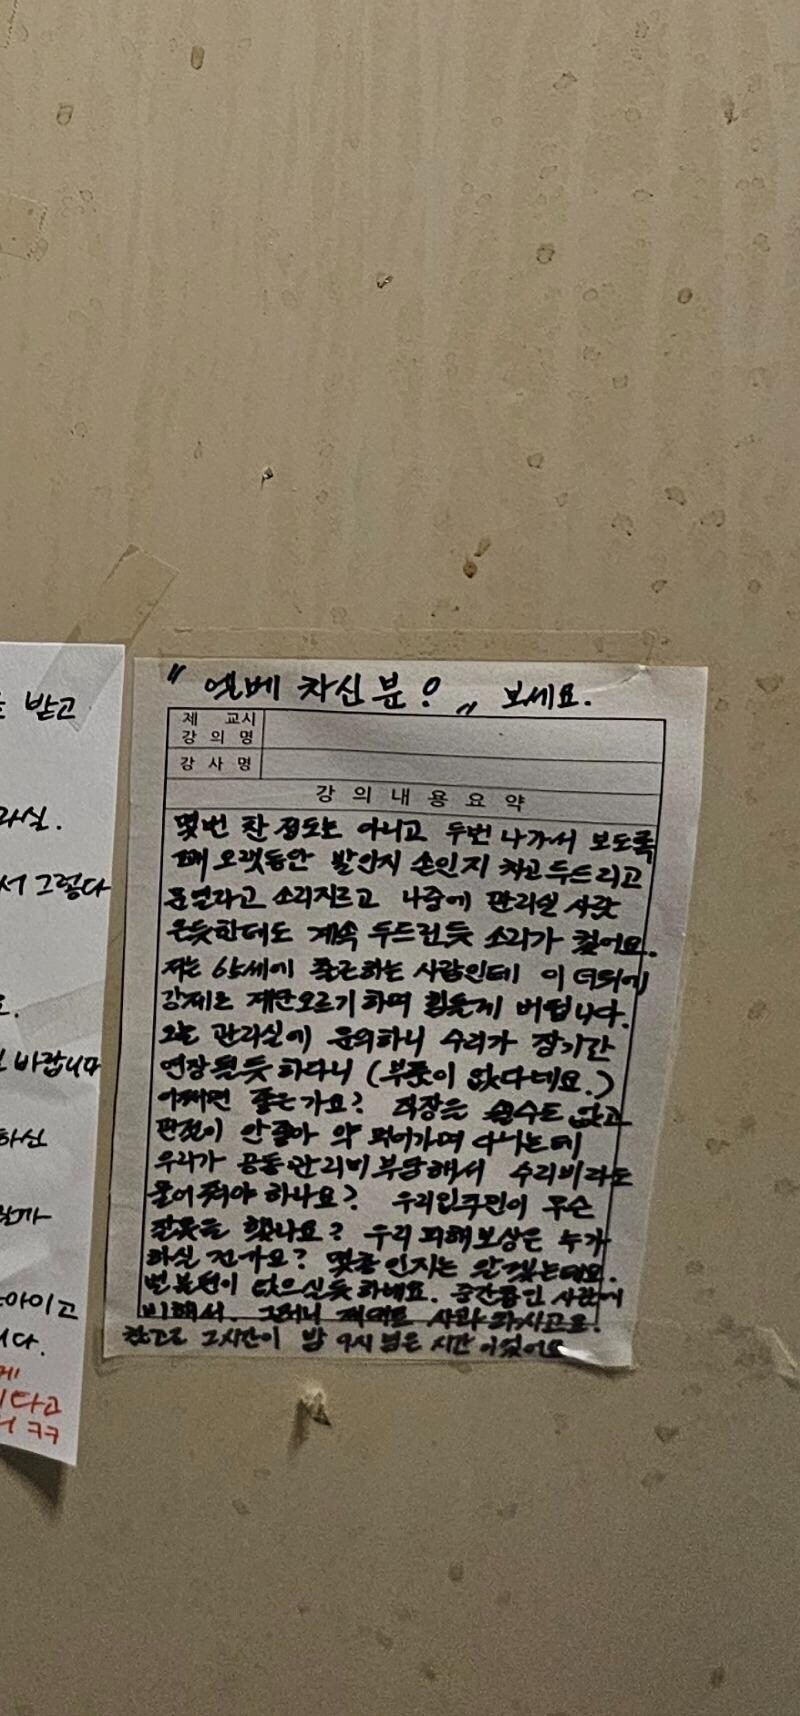 받고
과실.
서 그렇다
바랍니다
하신
아이고
니다.
게
이다고
ㅋㅋ
" 엘베 차신 분? " 보세요.
제 교시
강 의 명
강 사 명
강 의 내 용 요 약
몇번 찬 정도는 아니고 두번 나가서 보도록
꽤 오랫동안 발인지 손인지 차고 두드리고
문열라고 소리지르고 나중에 관리실 사람
온듯한데도 계속 두드린듯 소리가 컸어요.
저는 6시에 출근하는 사람인데 이 더위에
강제로 계단오르기 하며 힘들게 버팁니다.
오늘 관리실에 문의하니 수리가 장기간
연장될듯 하다니 (부품이 없다네요.)
어쩌면 좋은가요? 직장은 쉴수도 없고
관절이 안좋아 약 먹어가며 다니는데
우리가 공동관리비 부담해서 수리비라도
물어줘야 하나요? 우리입주민이 무슨
잘못을 했나요? 우리 피해보상은 누가
하실 건가요? 몇층인지는 알겠는데요.
별 불편이 없으신듯 하네요. 중간층인 사람에
비해서. 그러니 제대로 사과 하시고요.
참고로 그시간이 밤 9시 넘은 시간 이었어요